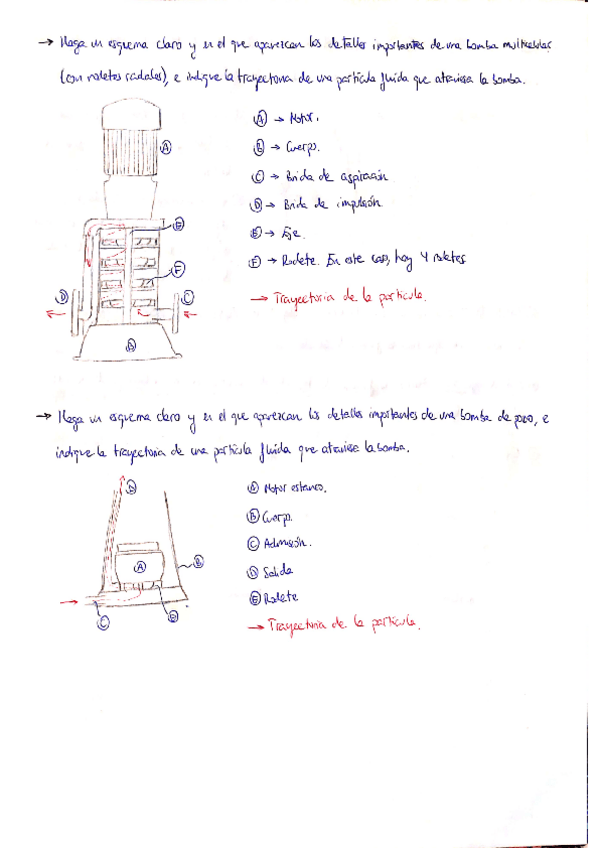 → Haga un esquema claro y en el que aparezcan los detalles importantes de una bomba multicelular
(con rodetes radiales), e indique la trayectoria de una partícula fluida que atraviesa la bomba.
Ⓐ → Motor.
Ⓑ → Cuerpo.
Ⓒ → Brida de aspiración
Ⓓ → Brida de impulsión
Ⓔ → Eje.
Ⓕ → Rodete. En este caso, hay 4 rodetes
→ Trayectoria de la partícula.
A
E
F
D
C
→ Haga un esquema claro y en el que aparezcan los detalles importantes de una bomba de pozo, e
indique la trayectoria de una partícula fluida que atraviesa la bomba.
Ⓐ Motor estanco.
Ⓑ Cuerpo.
Ⓒ Admisión.
Ⓓ Salida
Ⓔ Rodete
→ Trayectoria de la partícula.
D
A
B
C